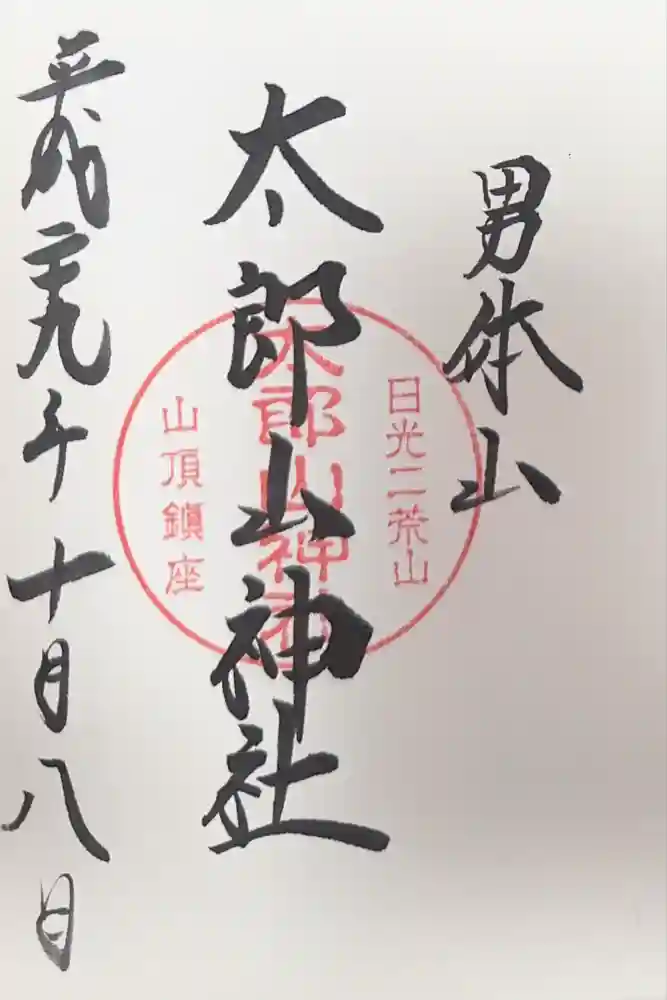 男体山
太郎山神社
平成二十九年十月八日
日光二荒山
太郎山神社
山頂鎮座